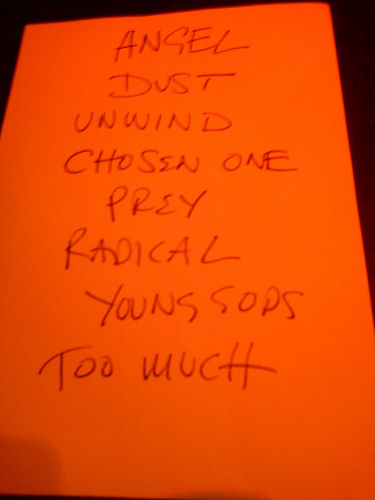 ANGEL
DUST
UNWIND
CHOSEN ONE
PREY
RADICAL
YOUNG GODS
TOO MUCH